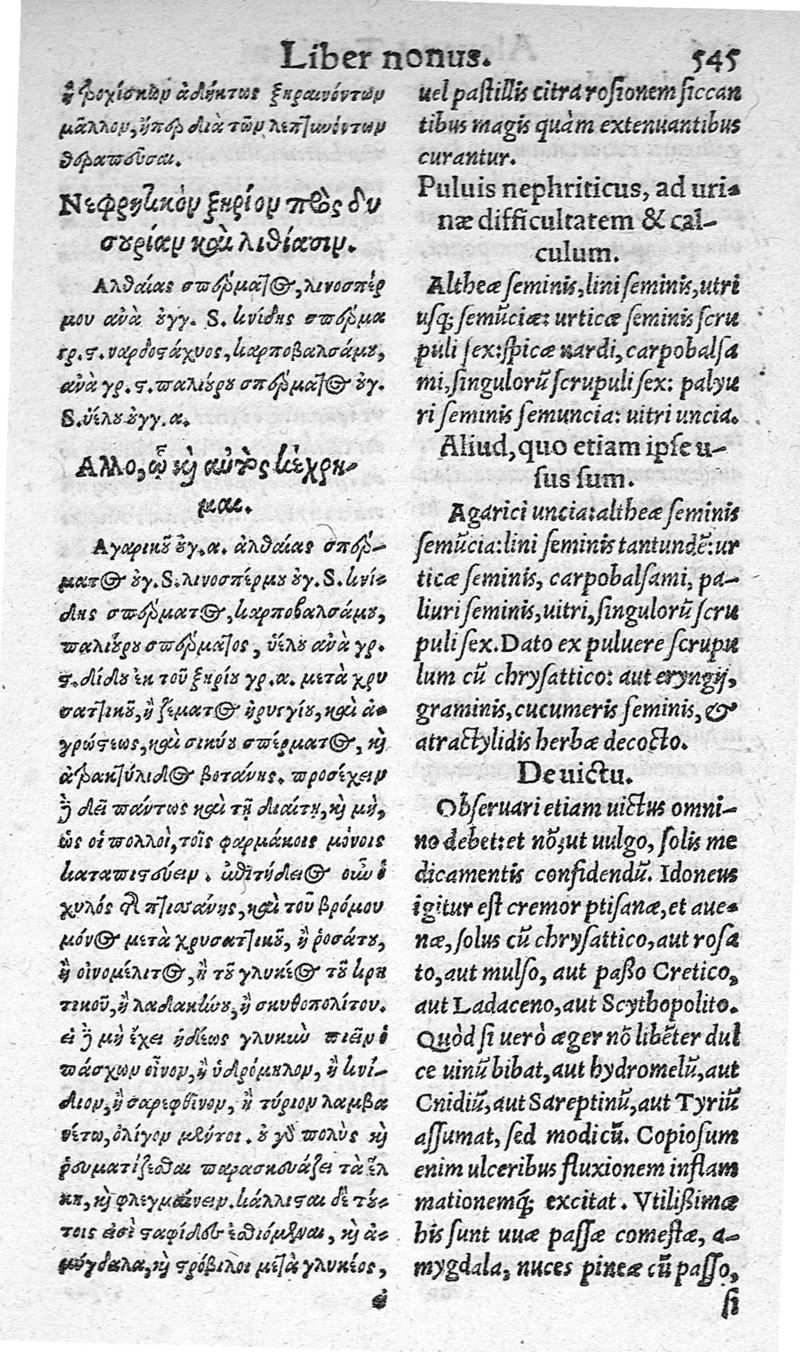 Liber nonus. 545
ἢ τροχίσκων ἀδήκτως ξηραινόντων
μᾶλλον, ἤπερ διὰ τῶν λεπτυνόντων
θεραπεῦσαι.
Νεφρητικὸν ξηρίον πρὸς δυ
σουρίαν καὶ λιθίασιν.
Αλθαίας σπέρματος, λινοσπέρ
μου ἀνὰ ουγγ. S. κνίδης σπέρμα
γρ. ϛ. ναρδοστάχυος, καρποβαλσάμου,
ἀνὰ γρ. ϛ. παλιούρου σπέρματος ουγ.
S. ὑέλου ουγγ. α.
Αλλο, ᾧ καὶ αὐτὸς κέχρη-
μαι.
Αγαρικοῦ ουγ. α. ἀλθαίας σπέρ-
ματος ουγ. S. λινοσπέρμου ουγ. S. κνί-
δης σπέρματος, καρποβαλσάμου,
παλιούρου σπέρματος, ὑέλου ἀνὰ γρ.
ϛ. δίδου ἐκ τοῦ ξηρίου γρ. α. μετὰ χρυ
σατικοῦ, ἢ ζέματος ἠρυγγίου, καὶ ἀ-
γρώστεως, καὶ σικύου σπέρματος, καὶ
ἀτρακτυλίδος βοτάνης. προσέχειν
δὲ δεῖ πάντως καὶ τῇ διαίτῃ, καὶ μὴ,
ὡς οἱ πολλοὶ, τοῖς φαρμάκοις μόνοις
καταπιστεύειν. ἐπιτήδειος οὖν ὁ
χυλὸς τῆς πτισάνης, καὶ τοῦ βρόμου
μόνος μετὰ χρυσαττικοῦ, ἢ ῥοσάτου,
ἢ οἰνομέλιτος, ἢ τοῦ γλυκέος τοῦ κρη
τικοῦ, ἢ λαδακηνοῦ, ἢ σκυθοπολίτου.
εἰ δὲ μὴ ἔχει ἡδέως γλυκὺν πιεῖν ὁ
πάσχων οἶνον, ἢ ὑδρόμηλον, ἢ κνί-
διον, ἢ σαρεφθῖνον, ἢ τύριον λαμβα
νέτω, ὀλίγον μέντοι. ὁ γὰρ πολὺς καὶ
ῥευματίζεσθαι παρασκευάζει τὰ ἕλ
κη, καὶ φλεγμαίνειν. κάλλισται δὲ τού-
τοις εἰσὶ σταφίδες ἐσθιόμεναι, καὶ ἀ-
μύγδαλα, καὶ στρόβιλοι μετὰ γλυκέος,
εἰ
uel pastillis citra rosionem siccan
tibus magis quàm extenuantibus
curantur.
Puluis nephriticus, ad uri-
næ difficultatem & cal-
culum.
Altheæ seminis, lini seminis, utri
usq; semũciæ: urticæ seminis scru
puli sex: spicæ nardi, carpobalsa
mi, singulorũ scrupuli sex: palyu
ri seminis semuncia: uitri uncia.
Aliud, quo etiam ipse u-
sus sum.
Agarici uncia: altheæ seminis
semũcia: lini seminis tantundẽ: ur
ticæ seminis, carpobalsami, pa-
liuri seminis, uitri, singulorũ scru
puli sex. Dato ex puluere scrupu
lum cũ chrysattico: aut eryngij,
graminis, cucumeris seminis, &
atractylidis herbæ decocto.
De uictu.
Obseruari etiam uictus omni-
no debet: et nõ, ut uulgo, solis me
dicamentis confidendũ. Idoneus
igitur est cremor ptisanæ, et aue-
næ, solus cũ chrysattico, aut rosa
to, aut mulso, aut passo Cretico,
aut Ladaceno, aut Scythopolito.
Quòd si uerò æger nõ libẽter dul
ce uinũ bibat, aut hydromelũ, aut
Cnidiũ, aut Sareptinũ, aut Tyriũ
assumat, sed modicũ. Copiosum
enim ulceribus fluxionem inflam
mationemq; excitat. Vtilissimæ
his sunt uuæ passæ comestæ, a-
mygdala, nuces pineæ cũ passo,
si